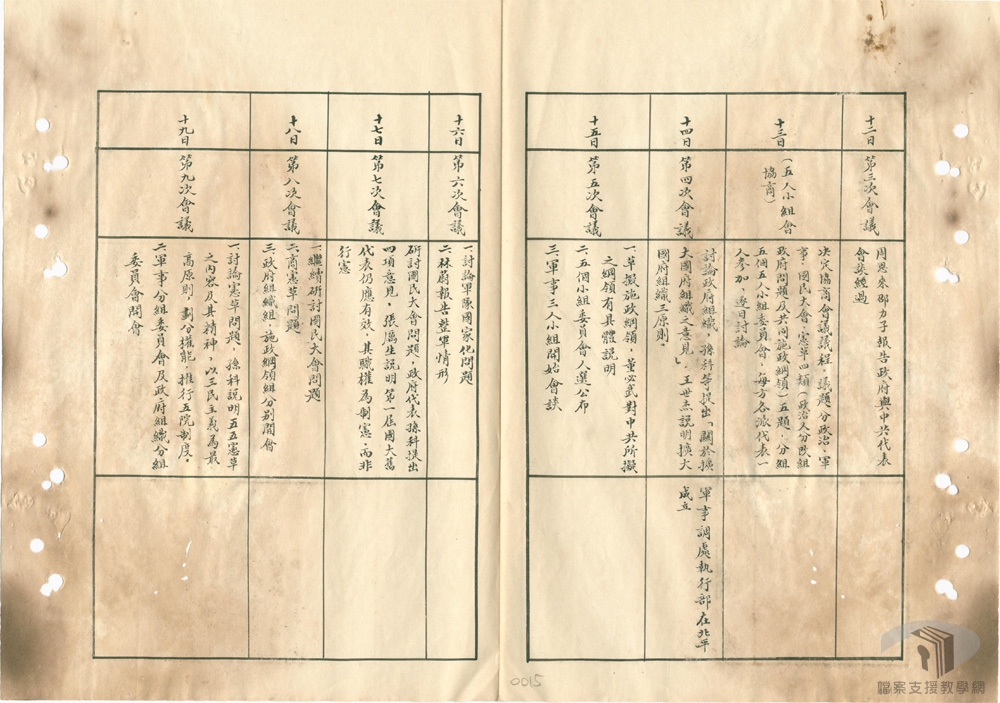 十二日
第三次會議
周恩來邵力子報告政府與中共代表
會談經過
十三日
(五人小組會
協商)
決定協商會議議程,議題分政治、軍
事、國民大會、憲草四類(政治又分改組
政府問題及共同施政綱領)五題,分組
五個五人小組委員會,每方各派代表一
人參加、逐日討論
十四日
第四次會議
討論政府組織,孫科等提出「關於擴
大國府組織之意見」,王世杰說明擴大
國府組織三原則。
軍事調處執行部在北平
成立
十五日
第五次會議
一、草擬施政綱領,董必武對中共所擬
之綱領有具體說明
二、五個小組委員會人選公布
三、軍事三人小組開始會談
十六日
第六次會議
一、討論軍隊國家化問題
二、林蔚報告整軍情形
十七日
第七次會議
研討國民大會問題,政府代表孫科提出
四項意見,張厲生說明第一屆國大舊
代表仍應有效,其職權為制憲,而非
行憲
十八日
第八次會議
一、繼續研討國民大會問題
二、商憲草問題
三、政府組織組,施政綱領組分別開會
十九日
第九次會議
一、討論憲草問題,孫科說明五五憲草
之內容及其精神,以三民主義為最
高原則,劃分權能,推行五院制度。
二、軍事分組委員會及政府組織分組
委員會開會
0015
檔案支援教學網